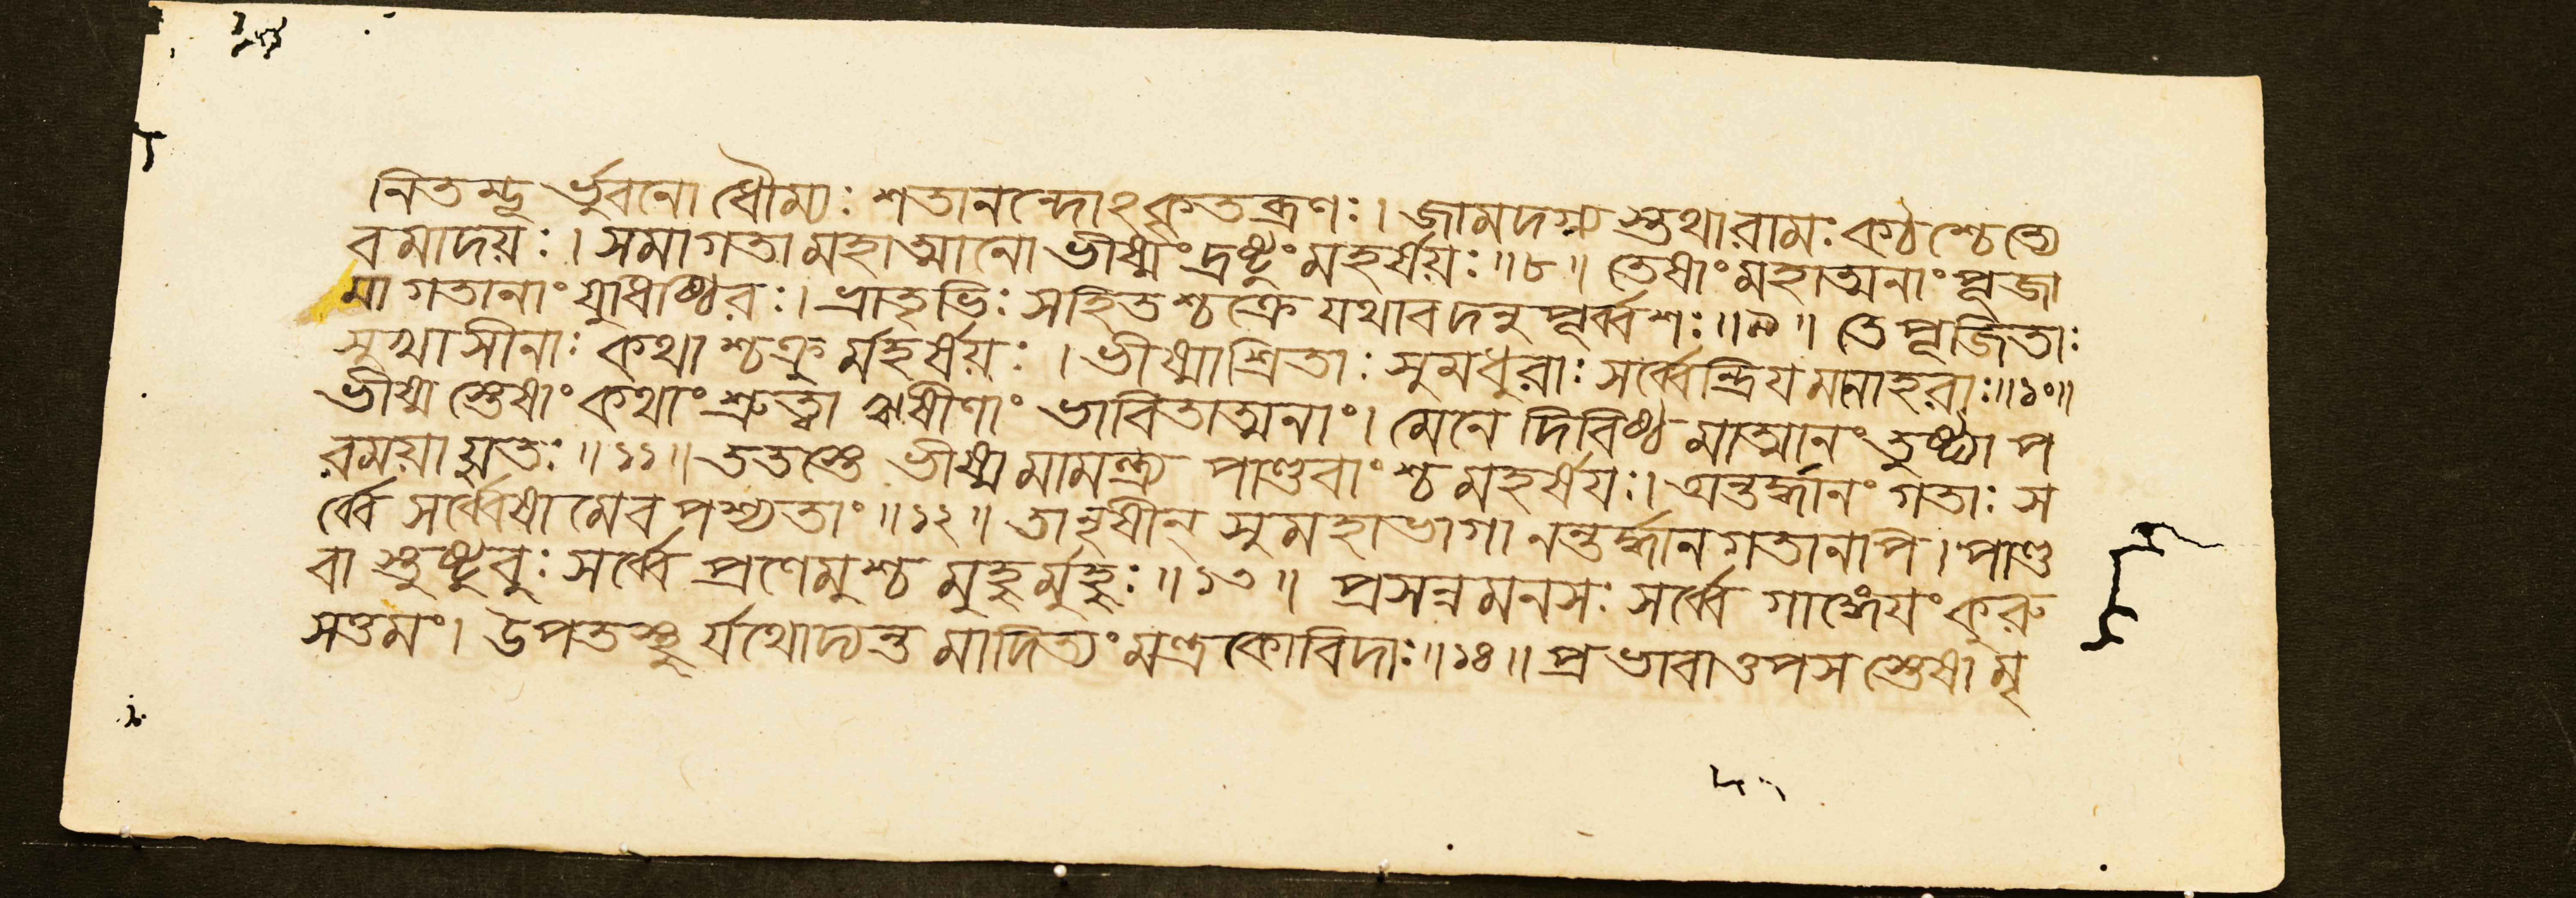 নিতম্ভূ র্ভুবনো ধৌম্যঃ শতানন্দোঽকৃতব্রণঃ। জামদগ্ন্য স্তথা রামঃ কচ শ্চেত্যে
ব মাদয়ঃ। সমাগতা মহাত্মানো ভীষ্মং দ্রষ্টুং মহর্ষয়ঃ॥৮॥ তেষাং মহাত্মনাং পূজা
মা গতানাং যুধিষ্ঠিরঃ। ভ্রাতৃভিঃ সহিত শ্চক্রে যথাবদনুপূর্ব্বশঃ॥৯॥ তে পূজিতাঃ
সুখাসীনাঃ কথা শ্চক্রু র্মহর্ষয়ঃ। ভীষ্মাশ্রিতাঃ সুমধুরাঃ সর্ব্বেন্দ্রিয মনোহরাঃ॥১০॥
ভীষ্ম স্তেষাং কথাং শ্রুত্বা ঋষীণাং ভাবিতাত্মনাং। মেনে দিবিষ্ঠ মাত্মানং তুষ্ট্যা প
রময়া যুতঃ॥১১॥ ততস্তে ভীষ্ম মামন্ত্র্য পাণ্ডবাংশ্চ মহর্ষযঃ। অন্তর্দ্ধানং গতাঃ স
র্ব্বে সর্ব্বেষা মেব পশ্যতাং॥১২॥ তানৃষীন্ সুমহাভাগা নন্তর্দ্ধান গতানপি। পাণ্ড
বা স্তুষ্টুবুঃ সর্ব্বে প্রণেমুশ্চ মুহুর্মুহুঃ॥১৩॥ প্রসন্নমনসঃ সর্ব্বে গাঙ্গেযং কুরু
সত্তমং। উপতস্থু র্যথোদ্যন্ত মাদিত্যং মন্ত্রকোবিদাঃ॥১৪॥ প্রভাবাত্তপস স্তেষা মৃ